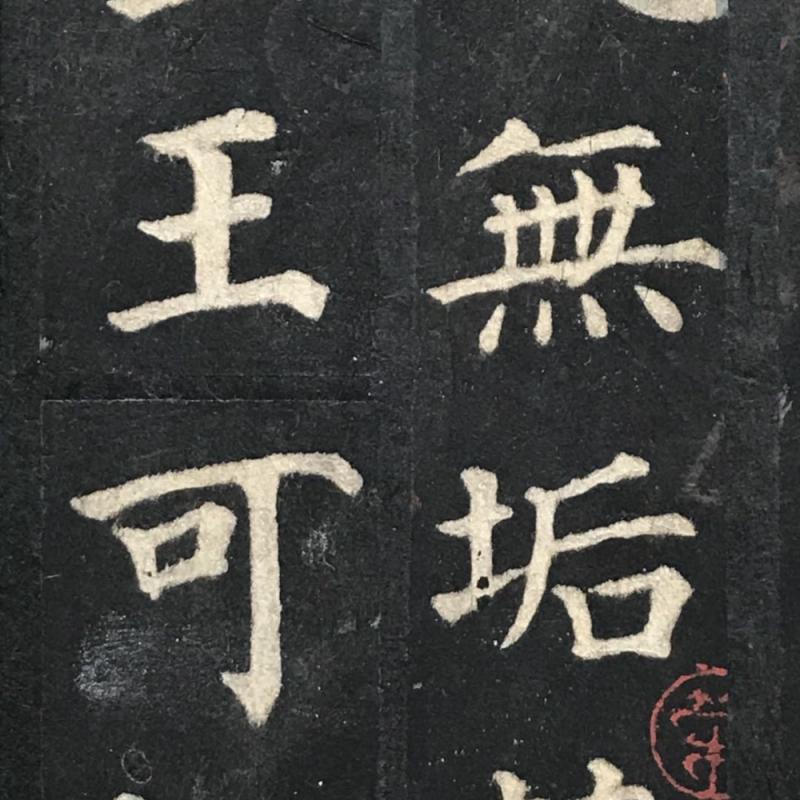 無垢
王可